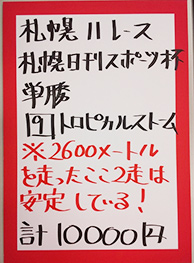 札幌11レース
札幌日刊スポーツ杯
単勝
9トロピカルストーム
※2600メートル
を走ったここ2走は
安定している!
計10000円